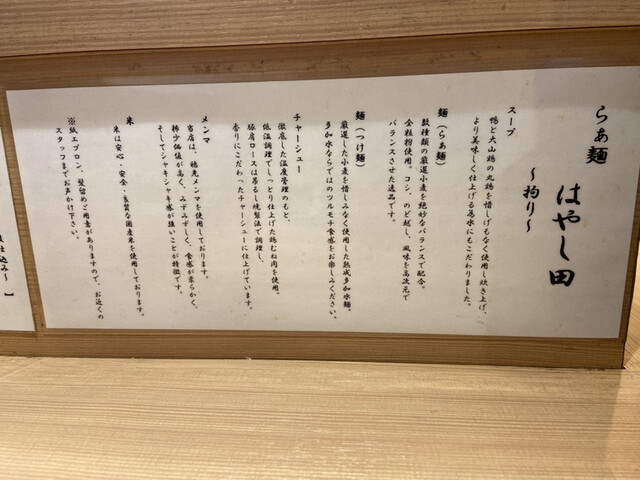 らぁ麺 はやし田
〜拘り〜
スープ
鴨と大山鶏の丸鶏を惜しげもなく使用し炊き上げ、
より美味しく仕上げる為水にもこだわりました。
麺(らぁ麺)
数種類の厳選小麦を絶妙なバランスで配合。
全粒粉使用。コシ、のど越し、風味を高次元で
バランスさせた逸品です。
麺(つけ麺)
厳選した小麦を惜しみなく使用した熟成多加水麺。
多加水ならではのツルモチ食感をお楽しみください。
チャーシュー
徹底した温度管理のもと、
低温調理でしっとり仕上げた鶏むね肉を使用。
豚肩ロースは吊るし焼製法で調理し、
香りにこだわったチャーシューに仕上げています。
メンマ
当店は、穂先メンマを使用しております。
稀少価値が高く、みずみずしく、食感が柔らかく、
そしてシャキシャキ感が強いことが特徴です。
米
米は安心・安全・良質な国産米を使用しております。
※紙エプロン、髪留めご用意がありますので、お近くの
スタッフまでお声かけ下さい。
仕込み〜 】